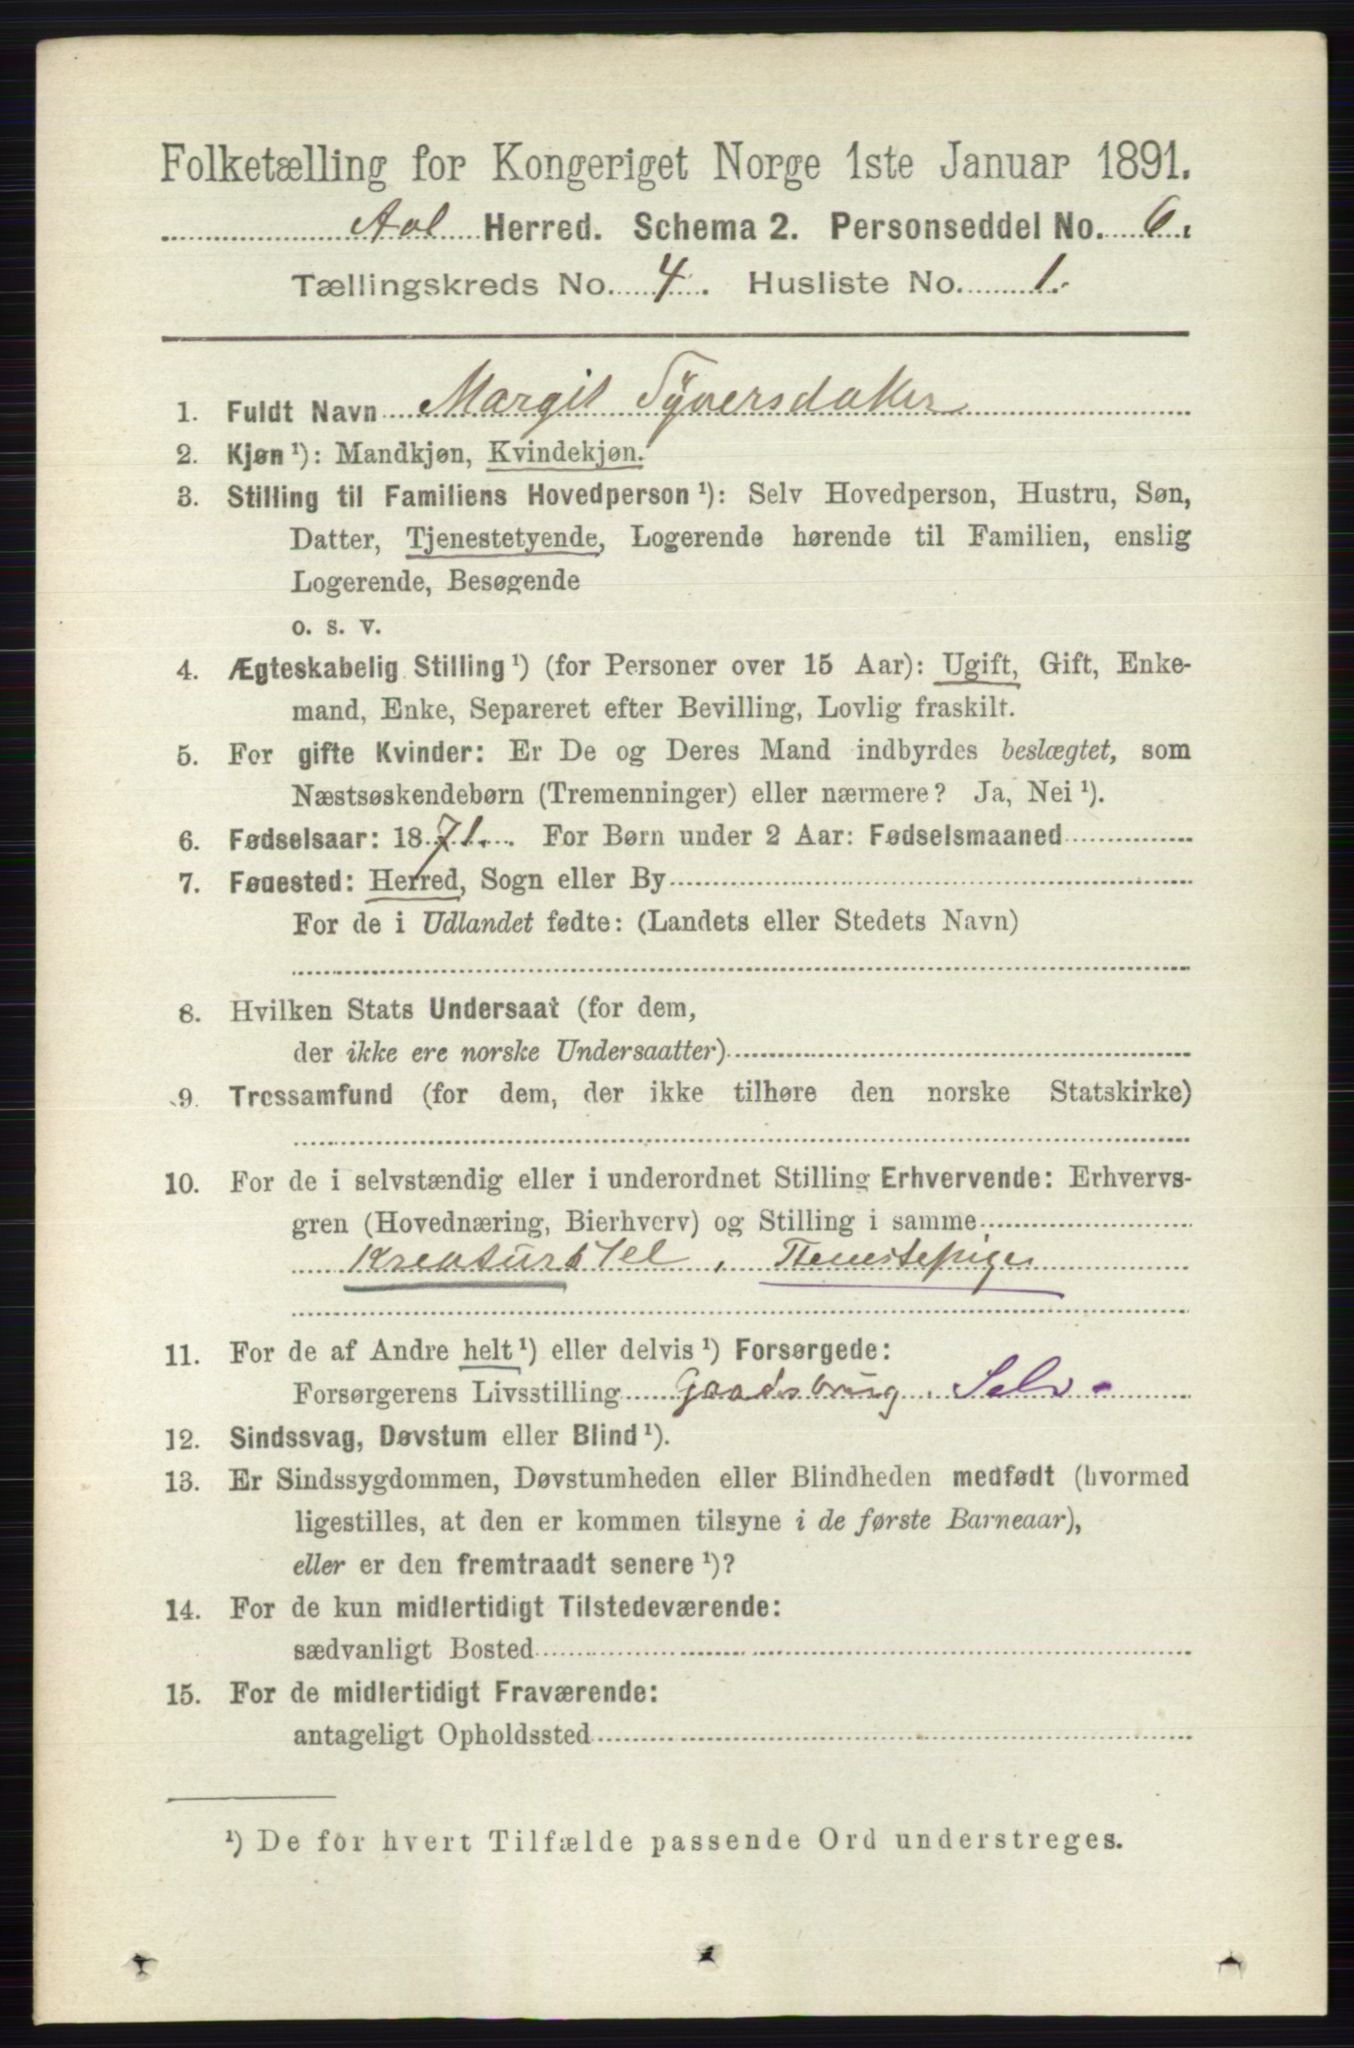 Folketælling for Kongeriget Norge 1ste Januar 1891.
Aal Herred. Schema 2. Personseddel No. 6.
Tællingskreds No. 4. Husliste No. 1.
1. Fuldt Navn Margit Syversdatter
2. Kjøn ¹): Mandkjøn, Kvindekjøn.
3. Stilling til Familiens Hovedperson ¹): Selv Hovedperson, Hustru, Søn,
Datter, Tjenestetyende, Logerende hørende til Familien, enslig
Logerende, Besøgende
o. s. v.
4. Ægteskabelig Stilling ¹) (for Personer over 15 Aar): Ugift, Gift, Enke-
mand, Enke, Separeret efter Bevilling, Lovlig fraskilt.
5. For gifte Kvinder: Er De og Deres Mand indbyrdes beslægtet, som
Næstsøskendebørn (Tremenninger) eller nærmere? Ja, Nei ¹).
6. Fødselsaar: 1871. For Børn under 2 Aar: Fødselsmaaned
7. Føuested: Herred, Sogn eller By
For de i Udlandet fødte: (Landets eller Stedets Navn)
8. Hvilken Stats Undersaat (for dem,
der ikke ere norske Undersaatter)
9. Trossamfund (for dem, der ikke tilhøre den norske Statskirke)
10. For de i selvstændig eller i underordnet Stilling Erhvervende: Erhvervs-
gren (Hovednæring, Bierhverv) og Stilling i samme
Kreaturstel, Tienestepige
11. For de af Andre helt ¹) eller delvis ¹) Forsørgede:
Forsørgerens Livsstilling Gaardsbrug. Selv
12. Sindssvag, Døvstum eller Blind ¹).
13. Er Sindssygdommen, Døvstumheden eller Blindheden medfødt (hvormed
ligestilles, at den er kommen tilsyne i de første Barneaar),
eller er den fremtraadt senere ¹)?
14. For de kun midlertidigt Tilstedeværende:
sædvanligt Bosted
15. For de midlertidigt Fraværende:
antageligt Opholdssted
¹) De for hvert Tilfælde passende Ord understreges.